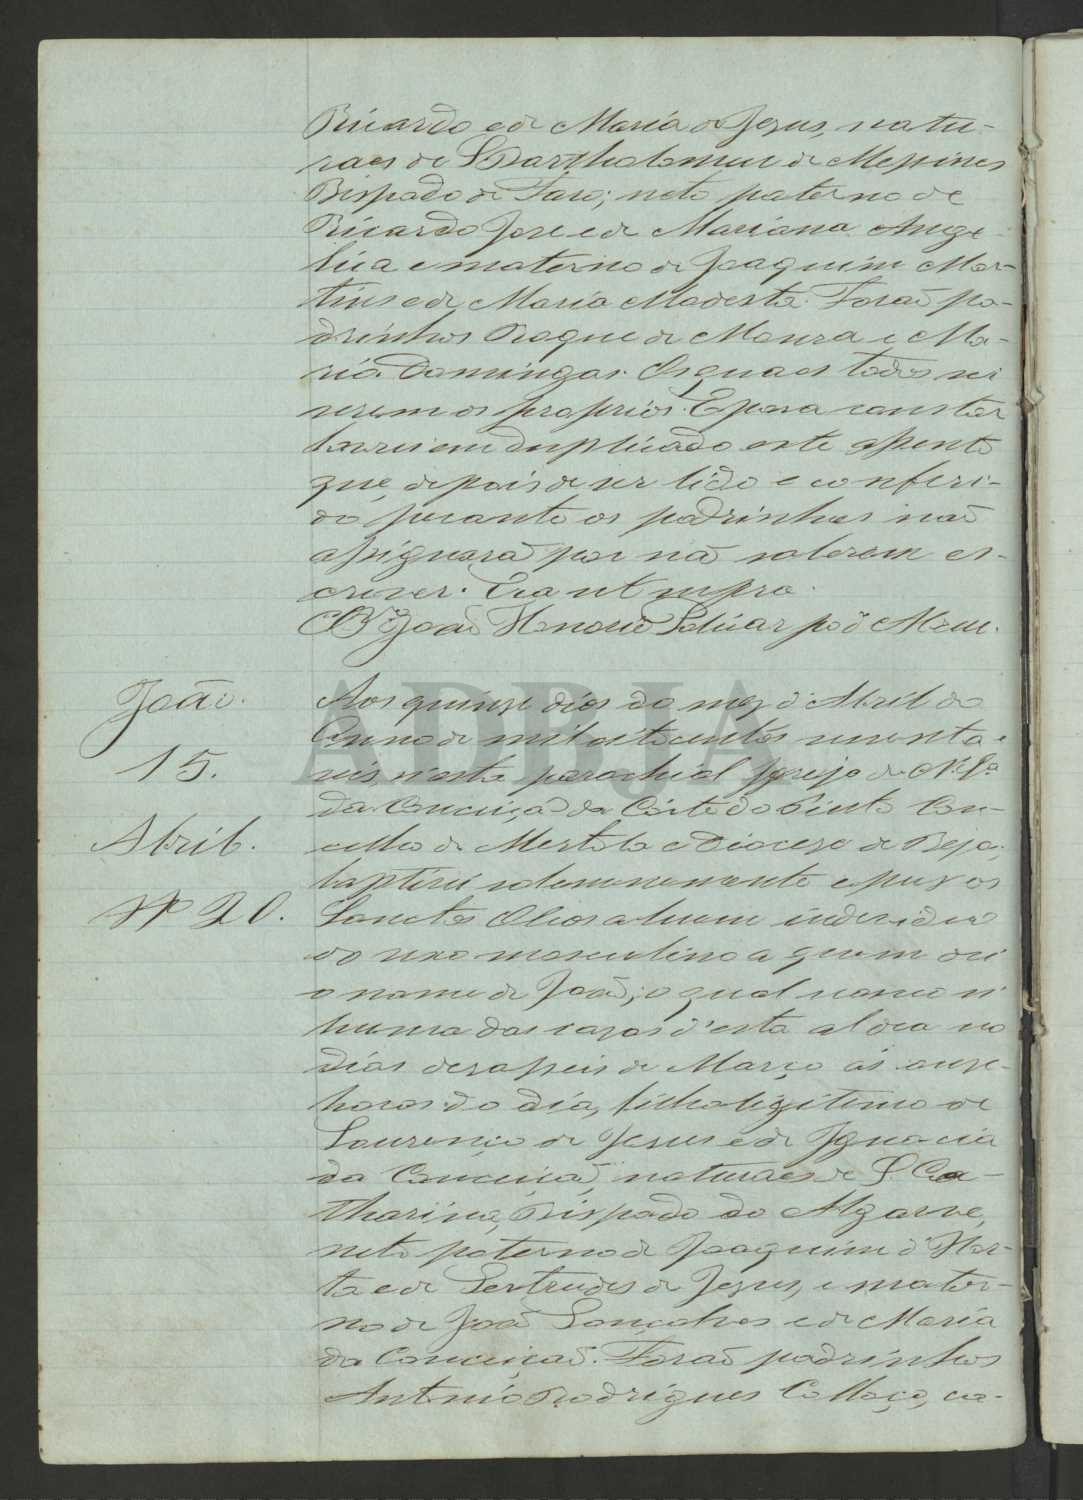 Ricardo e de Maria de Jesus, natu-
raes de S. Bartholomeu de Messines
Bispado de Faro; neto paterno de
Ricardo José e de Marianna Ange-
lica e materno de Joaquim Mar-
tins e de Maria Modesta. Forão pa-
drinhos Roque de Moura e Ma-
ria Domingas. Os quaes todos sei
serem os proprios. E para constar
lavrei em duplicado este assento
que, depois de ser lido e conferi-
do perante os padrinhos não
assignarão por não saberem es-
crever. Era ut supra.
João Honorio
João.
15.
Abril.
Nº 20.
Aos quinze dias do mez d'Abril do
Anno de mil oitocentos noventa e
seis, n'esta parochial Igreja de N. Sª
da Conceição da Côrte do Pinto Con-
celho de Mertola e Diocese de Beja,
baptisei solemnemente e puz os
Sanctos Oleos a hum individuo
do sexo masculino a quem dei
o nome de João; o qual nasceo n'
huma das casas d'esta aldea no
dia dezasseis de Março ás onze
horas do dia, filho legitimo de
Lourenço de Jesus e de Ignacia
da Conceição, naturaes de S. Ca-
tharina, Bispado do Algarve,
neto paterno de Joaquim d'Hor-
ta e de Gertrudes de Jesus, e mater-
no de João Gonçalves e de Maria
da Conceição. Forão padrinhos
Antonio Rodrigues Collaço, ca-
ADBJA